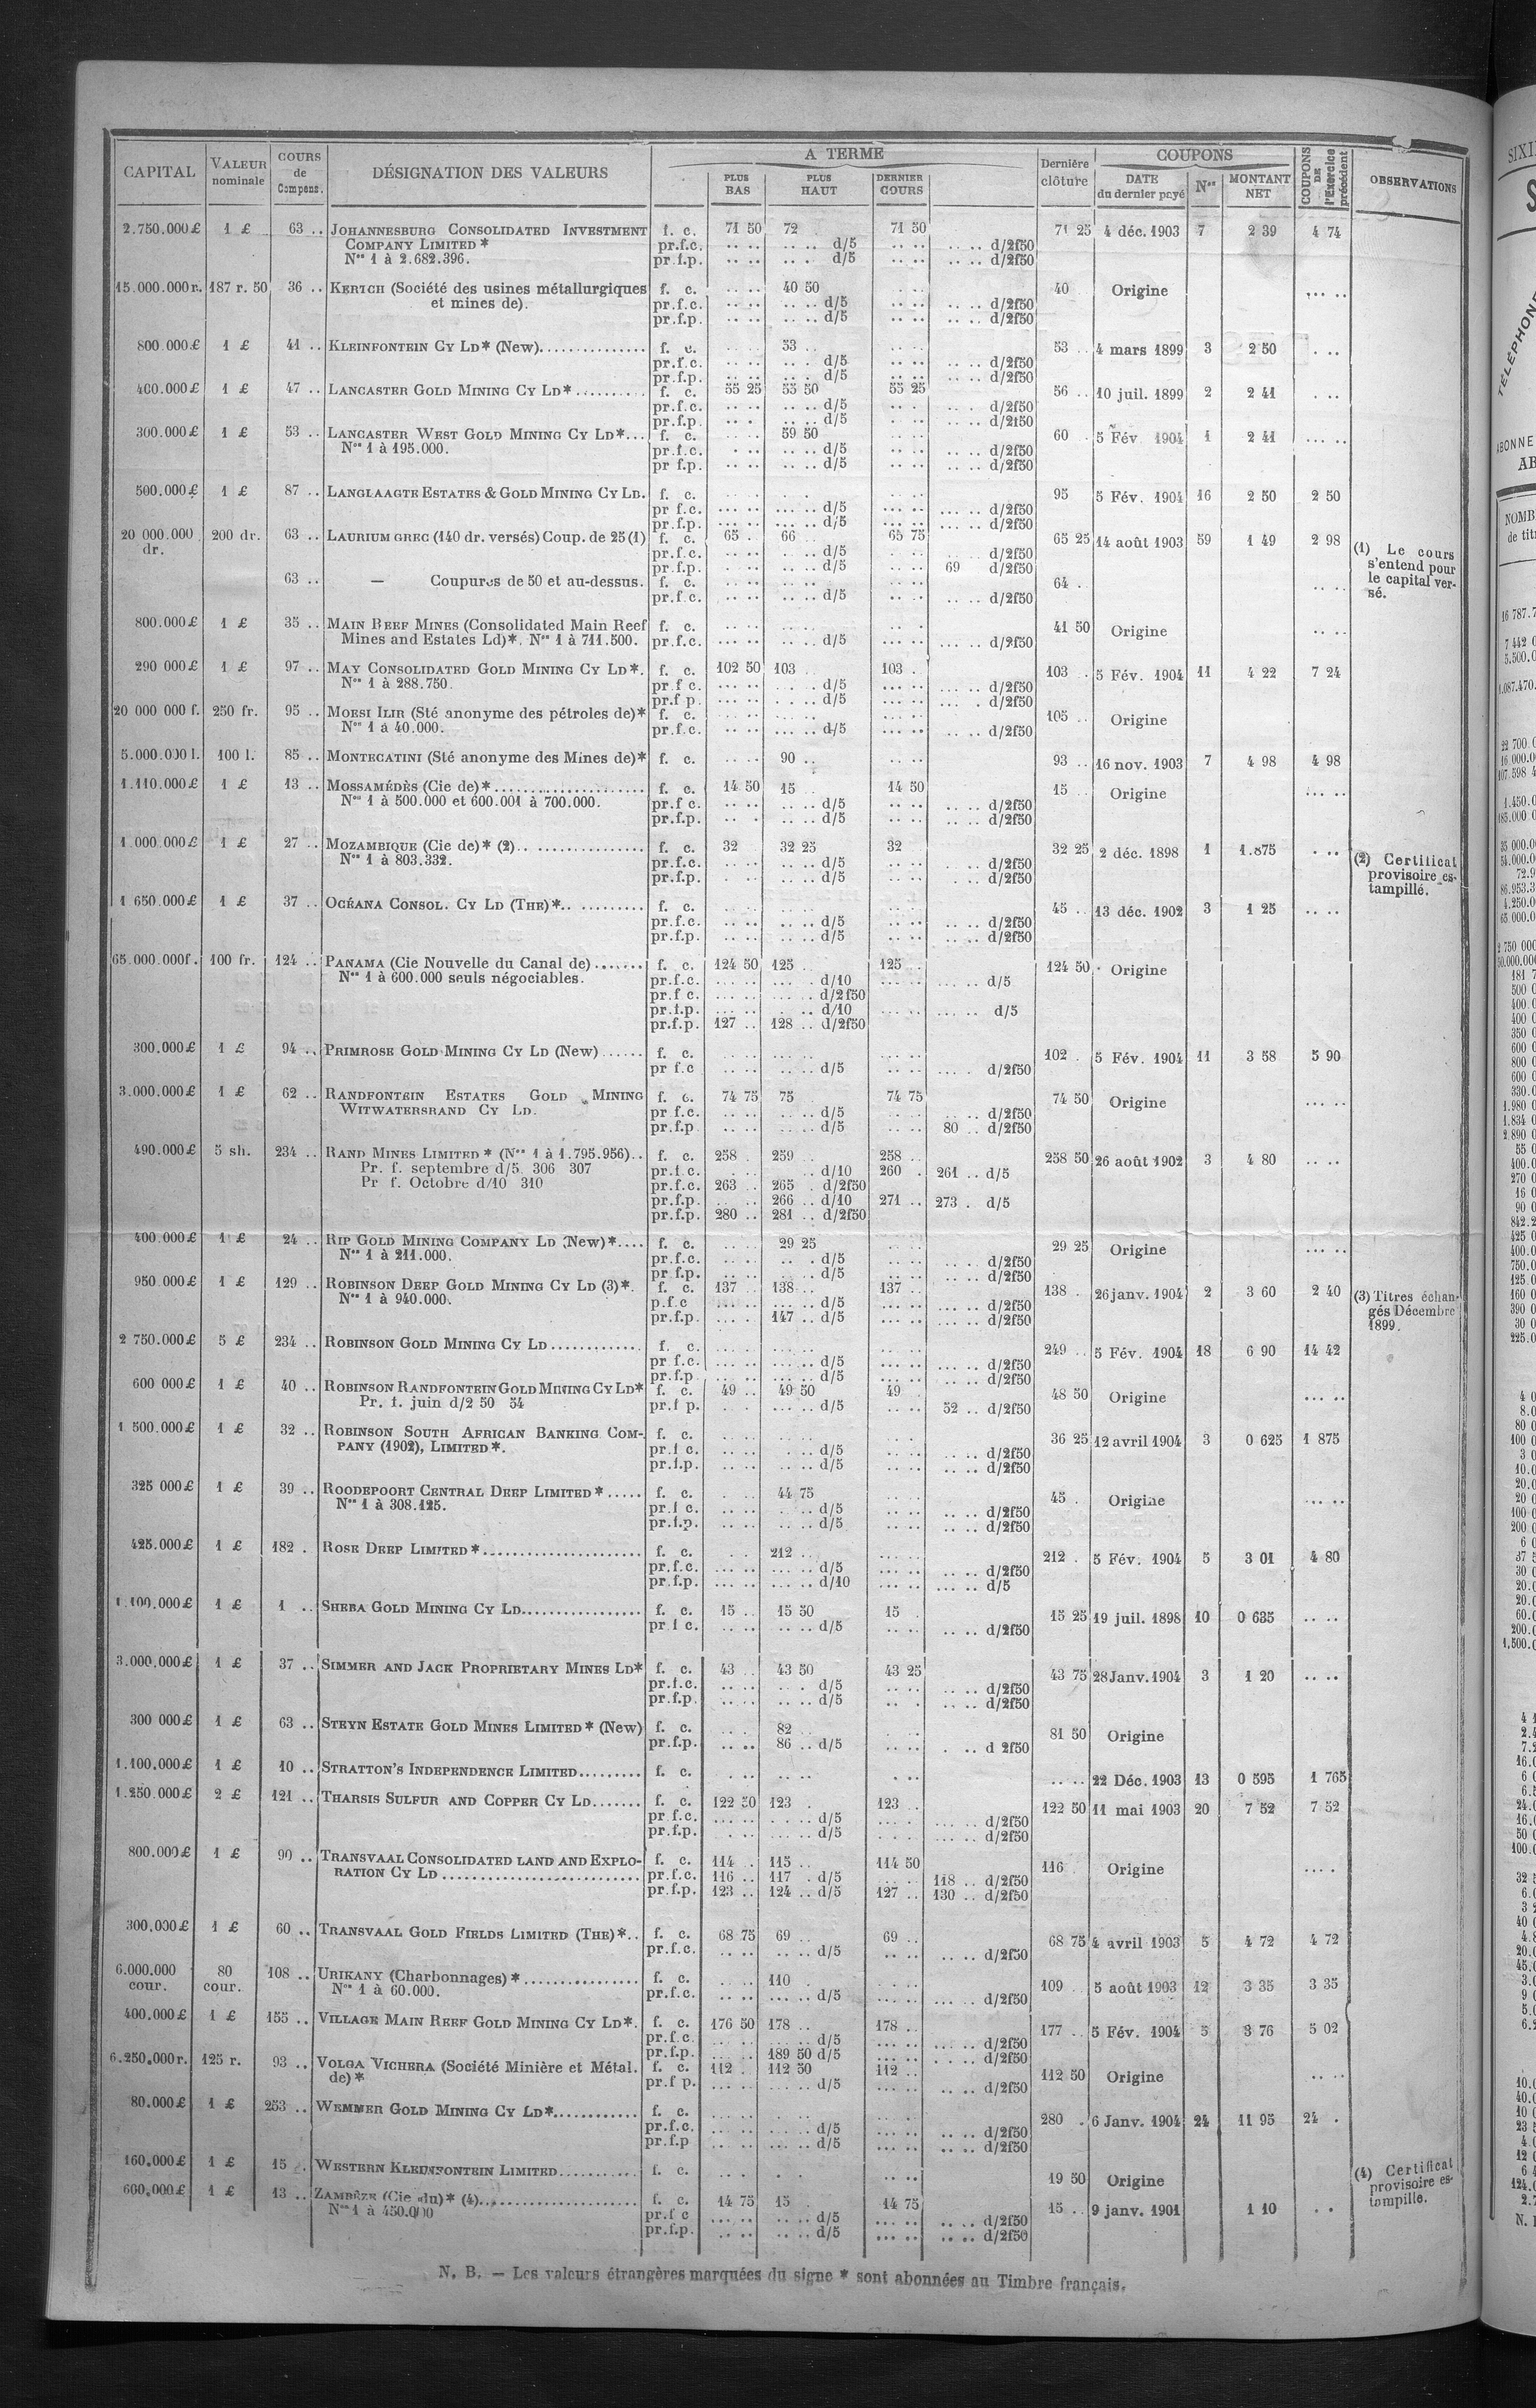 CAPITAL | VALEUR nominale | COURS de Compens. | DÉSIGNATION DES VALEURS | A TERME | PLUS BAS | PLUS HAUT | DERNIER COURS | Dernière clôture | COUPONS | DATE du dernier payé | Nos | MONTANT NET | COUPONS DE l'Exercice précédent | OBSERVATIONS
2.750.000£ 1 £ 63 .. JOHANNESBURG CONSOLIDATED INVESTMENT f. c. 71 50 72 71 50 71 25 4 déc. 1903 7 2 39 4 74
COMPANY LIMITED * pr.f.c. .. .. .. .. d/5 .. .. .. .. d/2f50
Nos 1 à 2.682.396. pr.f.p. .. .. .. . d/5 .. .. .. .. d/2f50
15.000.000r. 187 r. 50 36 .. KERTCH (Société des usines métallurgiques f. c. 40 50 40 Origine ... ..
et mines de). pr.f.c. .. .. .. .. d/5 .. .. .. .. d/2f50
pr.f.p. .. .. .. .. d/5 .. .. .. .. d/2f50
800.000£ 1 £ 41 .. KLEINFONTEIN CY LD* (New) f. c. 53 .. 53 .. 4 mars 1899 3 2 50 . ..
pr.f.c. .. .. .. . d/5 .. .. d/2f50
pr.f.p. .. .. .. .. d/5 .. .. d/2f50
400.000£ 1 £ 47 .. LANCASTER GOLD MINING CY LD* f. c. 55 25 55 50 55 25 56 .. 10 juil. 1899 2 2 41 . ..
pr.f.c. .. .. .. .. d/5 .. . d/2f50
pr.f.p. .. . .. .. d/5 .. .. d/2f50
300.000£ 1 £ 53 .. LANCASTER WEST GOLD MINING CY LD* f. c. 59 50 60 . 5 Fév 1904 1 2 41 ... ..
Nos 1 à 195.000. pr.f.c. . .. .. .. d/5 .. .. d/2f50
pr f.p. .. .. .. .. d/5 .. .. d/2f50
500.000£ 1 £ 87 .. LANGLAAGTE ESTATES & GOLD MINING CY LD. f. c. 95 5 Fév. 1904 16 2 50 2 50
pr f.c. ... .. ... .. d/5 ... .. d/2f50
pr.f.p. ... .. ... .. d/5 ... .. d/2f50
20 000.000 dr. 200 dr. 63 .. LAURIUM GREC (140 dr. versés) Coup. de 25 (1) f. c. 65 . 66 65 75 65 25 14 août 1903 59 1 49 2 98 (1) Le cours
s'entend pour
le capital ver-
sé.
pr.f.c. .. .. .. .. d/5 .. .. d/2f50
pr.f.p. .. .. .. .. d/5 69 d/2f50
63 .. — Coupures de 50 et au-dessus. f. c. 64 .
pr.f.c. .. .. .. .. d/5 .. .. d/2f50
800.000£ 1 £ 35 .. MAIN REEF MINES (Consolidated Main Reef f. c. 41 50 Origine .. ..
Mines and Estates Ld)*. Nos 1 à 711.500. pr.f.c. ... .. ... .. d/5 ... .. d/2f50
290 000£ 1 £ 97 .. MAY CONSOLIDATED GOLD MINING CY LD*. f. c. 102 50 103 103 . 103 .. 5 Fév. 1904 11 4 22 7 24
Nos 1 à 288.750. pr f c. ... .. d/5 ... .. d/2f50
pr.f p. ... .. d/5 ... . d/2f50
20 000 000 f. 250 fr. 95 .. MOESI ILIR (Sté anonyme des pétroles de)* f. c. 105 .. Origine
Nos 1 à 40.000. pr.f.c. ... .. ... .. d/5 ... .. d/2f50
5.000.000 l. 100 l. 85 .. MONTECATINI (Sté anonyme des Mines de)* f. c. 90 .. 93 .. 16 nov. 1903 7 4 98 4 98
1.110.000£ 1 £ 13 .. MOSSAMÉDÈS (Cie de)* f. c. 14 50 15 14 50 15 Origine ... ..
Nos 1 à 500.000 et 600.001 à 700.000. pr.f c. .. .. .. .. d/5 .. .. d/2f50
pr.f.p. .. .. .. .. d/5 .. .. d/2f50
1.000.000£ 1 £ 27 .. MOZAMBIQUE (Cie de)* (2) f. c. 32 32 25 32 32 25 2 déc. 1898 1 1.875 . .. (2) Certificat
provisoire es-
tampillé.
Nos 1 à 803.332. pr.f.c. .. .. .. .. d/5 .. .. d/2f50
pr.f.p. .. .. .. d/5 .. .. d/2f50
1 650.000£ 1 £ 37 .. OCÉANA CONSOL. CY LD (THE)* f. c. 45 .. 13 déc. 1902 3 1 25 .. ..
pr.f.c. .. .. .. .. d/5 .. .. d/2f50
pr.f.p. .. .. .. .. d/5 .. .. d/2f50
65.000.000f. 100 fr. 124 .. PANAMA (Cie Nouvelle du Canal de) f. c. 124 50 125 125 . 124 50 Origine
Nos 1 à 600.000 seuls négociables. pr.f.c. ... .. ... . d/10 ... .. d/5
pr.f c. ... .. d/2f50
pr.f.p. ... .. d/10 ... .. d/5
pr.f.p. 127 .. 128 .. d/2f50
300.000£ 1 £ 94 .. PRIMROSE GOLD MINING CY LD (New) f. c. 102 . 5 Fév. 1904 11 3 58 5 90
pr f.c ... .. ... .. d/5 ... . d/2f50
3.000.000£ 1 £ 62 .. RANDFONTEIN ESTATES GOLD MINING f. c. 74 75 75 74 75 74 50 Origine ... ..
WITWATERSRAND CY LD. pr f.c. .. .. .. .. d/5 .. .. d/2f50
pr.f.p .. .. .. .. d/5 80 .. d/2f50
490.000£ 5 sh. 234 .. RAND MINES LIMITED * (Nos 1 à 1.795.956).. f. c. 258 . 259 258 .. 258 50 26 août 1902 3 4 80 .. ..
Pr. f. septembre d/5 306 307 pr.f.c. .. d/10 260 . 261 .. d/5
Pr f. Octobre d/10 310 pr.f.c. 263 .. 265 . d/2f50
pr.f.p. 266 .. d/10 271 .. 273 . d/5
pr.f.p. 280 .. 281 .. d/2f50
400.000£ 1 £ 24 .. RIP GOLD MINING COMPANY LD (New)* f. c. 29 25 29 25 Origine ... ..
Nos 1 à 211.000. pr.f.c. .. .. .. . d/5 .. .. d/2f50
pr f.p. .. .. .. .. d/5 .. .. d/2f50
950.000£ 1 £ 129 .. ROBINSON DEEP GOLD MINING CY LD (3)*. f. c. 137 .. 138 .. 137 .. 138 . 26 janv. 1904 2 3 60 2 40 (3) Titres échan-
gés Décembre
1899.
Nos 1 à 940.000. p.f.c ... .. ... .. d/5 ... .. d/2f50
pr.f.p. ... .. 147 .. d/5 ... .. d/2f50
2 750.000£ 5 £ 234 .. ROBINSON GOLD MINING CY LD f. c. 249 .. 5 Fév. 1904 18 6 90 14 42
pr f.c. ... .. ... .. d/5 ... .. d/2f50
pr.f.p ... .. ... .. d/5 ... .. d/2f50
600 000£ 1 £ 40 .. ROBINSON RANDFONTEIN GOLD MINING CY LD* f. c. 49 .. 49 50 49 48 50 Origine ... ..
Pr. f. juin d/2 50 54 pr.f p. ... .. d/5 52 .. d/2f50
1 500.000£ 1 £ 32 .. ROBINSON SOUTH AFRICAN BANKING COM- f. c. 36 25 12 avril 1904 3 0 625 1 875
PANY (1902), LIMITED*. pr.f c. .. .. .. .. d/5 .. .. d/2f50
pr.f.p. .. .. .. .. d/5 .. .. d/2f50
325 000£ 1 £ 39 .. ROODEPOORT CENTRAL DEEP LIMITED * f. c. 44 75 45 . Origine ... ..
Nos 1 à 308.125. pr.f c. .. .. .. .. d/5 .. .. d/2f50
pr.f.p. .. .. .. .. d/5 .. .. d/2f50
425.000£ 1 £ 182 . ROSE DEEP LIMITED * f. c. 212 .. 212 . 5 Fév. 1904 5 3 01 4 80
pr.f.c. ... .. ... .. d/5 ... .. d/2f50
pr.f.p. ... .. ... .. d/10 ... .. d/5
1.100.000£ 1 £ 1 .. SHEBA GOLD MINING CY LD f. c. 15 .. 15 50 15 . 15 25 19 juil. 1898 10 0 635 .. ..
pr f c. .. .. .. .. d/5 .. .. d/2f50
3.000.000£ 1 £ 37 .. SIMMER AND JACK PROPRIETARY MINES LD* f. c. 43 .. 43 50 43 25 43 75 28 Janv. 1904 3 1 20 .. ..
pr.f.c. .. .. .. . d/5 .. .. d/2f50
pr.f.p. .. .. .. .. d/5 .. .. d/2f50
300 000£ 1 £ 63 .. STEYN ESTATE GOLD MINES LIMITED * (New) f. c. 82 .. 81 50 Origine
pr.f.p. .. .. 86 .. d/5 . .. d 2f50
1.100.000£ 1 £ 10 .. STRATTON'S INDEPENDENCE LIMITED f. c. .. .. .. .. . .. .. .. 22 Déc. 1903 13 0 595 1 765
1.250.000£ 2 £ 121 .. THARSIS SULFUR AND COPPER CY LD f. c. 122 50 123 . 123 .. 122 50 11 mai 1903 20 7 52 7 52
pr f.c. ... .. ... .. d/5 ... .. d/2f50
pr.f.p. ... .. ... .. d/5 ... .. d/2f50
800.000£ 1 £ 90 .. TRANSVAAL CONSOLIDATED LAND AND EXPLO- f. c. 114 . 115 .. 114 50 116 Origine ... .
RATION CY LD pr.f.c. 116 .. 117 . d/5 118 .. d/2f50
pr.f.p. 123 .. 124 .. d/5 127 .. 130 .. d/2f50
300.000£ 1 £ 60 .. TRANSVAAL GOLD FIELDS LIMITED (THE)*.. f. c. 68 75 69 .. 69 .. 68 75 4 avril 1903 5 4 72 4 72
pr.f.c. .. .. .. .. d/5 .. .. d/2f50
6.000.000 cour. 80 cour. 108 .. URIKANY (Charbonnages) * f. c. 110 109 .. 5 août 1903 12 3 35 3 35
Nos 1 à 60.000. pr.f.c. .. .. ... .. d/5 ... .. d/2f50
400.000£ 1 £ 155 .. VILLAGE MAIN REEF GOLD MINING CY LD*. f. c. 176 50 178 .. 178 .. 177 .. 5 Fév. 1904 5 3 76 5 02
pr.f.c. ... .. d/5 ... .. d/2f50
pr.f.p. ... .. 189 50 d/5 ... .. d/2f50
6.250.000r. 125 r. 93 .. VOLGA VICHERA (Société Minière et Métal. f. c. 112 . 112 50 112 .. 112 50 Origine .. ..
de)* pr.f p. ... .. ... .. d/5 ... .. d/2f50
80.000£ 1 £ 253 .. WEMMER GOLD MINING CY LD* f. c. 280 . 6 Janv. 1904 24 11 95 24 .
pr.f.c. ... .. ... .. d/5 ... .. d/2f50
pr.f.p ... .. ... .. d/5 ... .. d/2f50
160.000£ 1 £ 15 . WESTERN KLEINFONTEIN LIMITED f. c. 19 50 Origine (4) Certificat
provisoire es-
tampille.
600.000£ 1 £ 13 .. ZAMBÈZE (Cie du)* (4) f. c. 14 75 15 14 75 15 .. 9 janv. 1901 1 10 . .
Nos 1 à 450.000 pr.f c ... .. .. .. d/5 ... .. d/2f50
pr.f.p. .. .. .. .. d/5 ... .. d/2f50
N. B. — Les valeurs étrangères marquées du signe * sont abonnées au Timbre français.